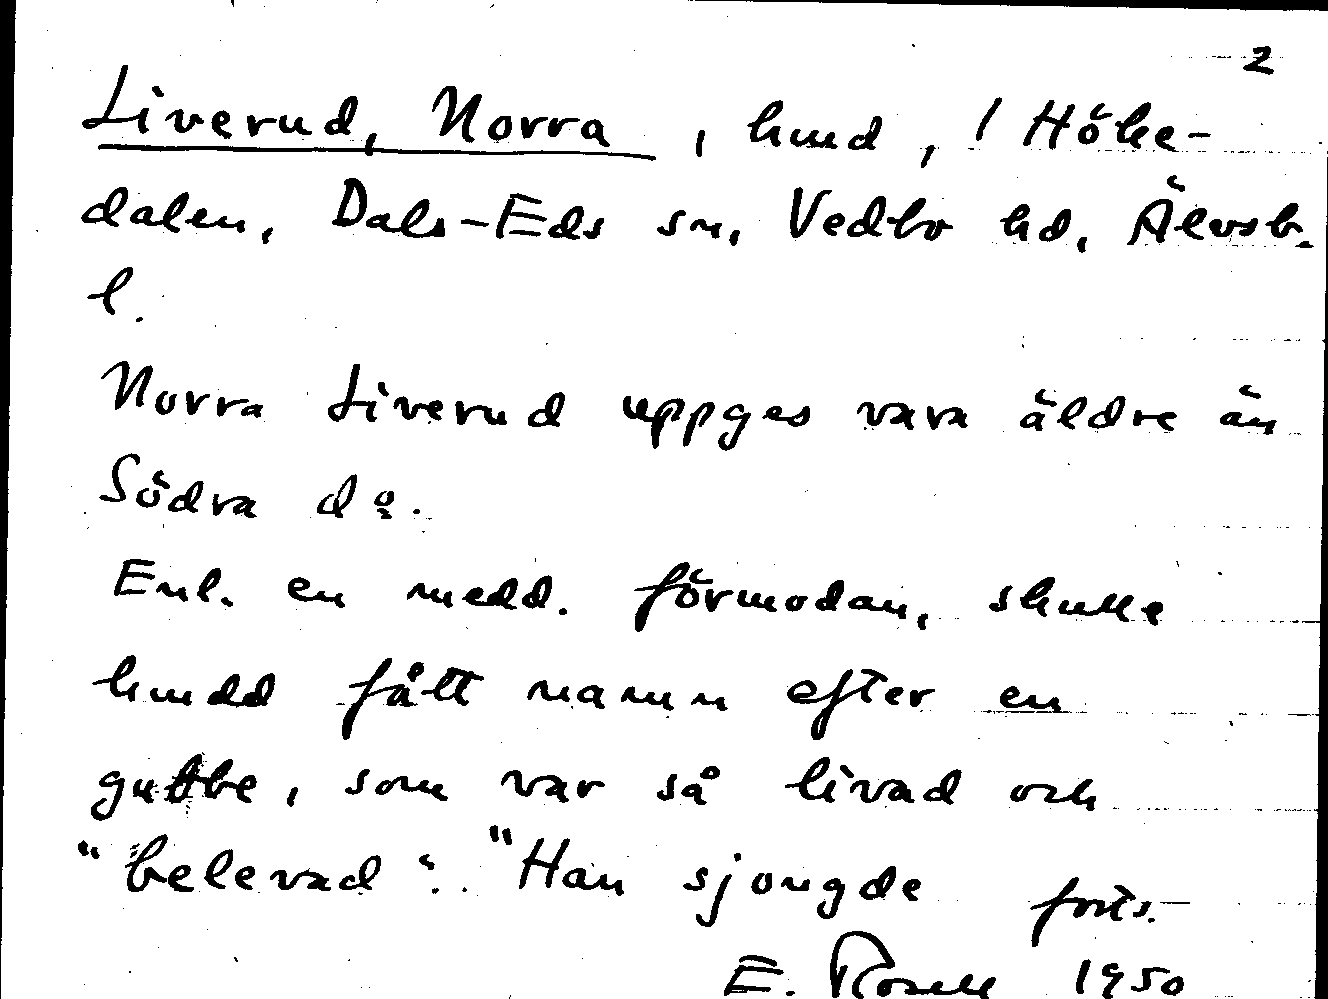 2
Liverud, Norra, hmd, / Höke-
dalen, Dals-Eds sn, Vedbo hd, Älvsb.
l.
Norra Liverud uppges vara äldre än
Södra do.
Enl. en medd. förmodan, skulle
hmdd fått namn efter en
gubbe, som var så livad och
"belevad". "Han sjongde forts.
E. Rosell 1950